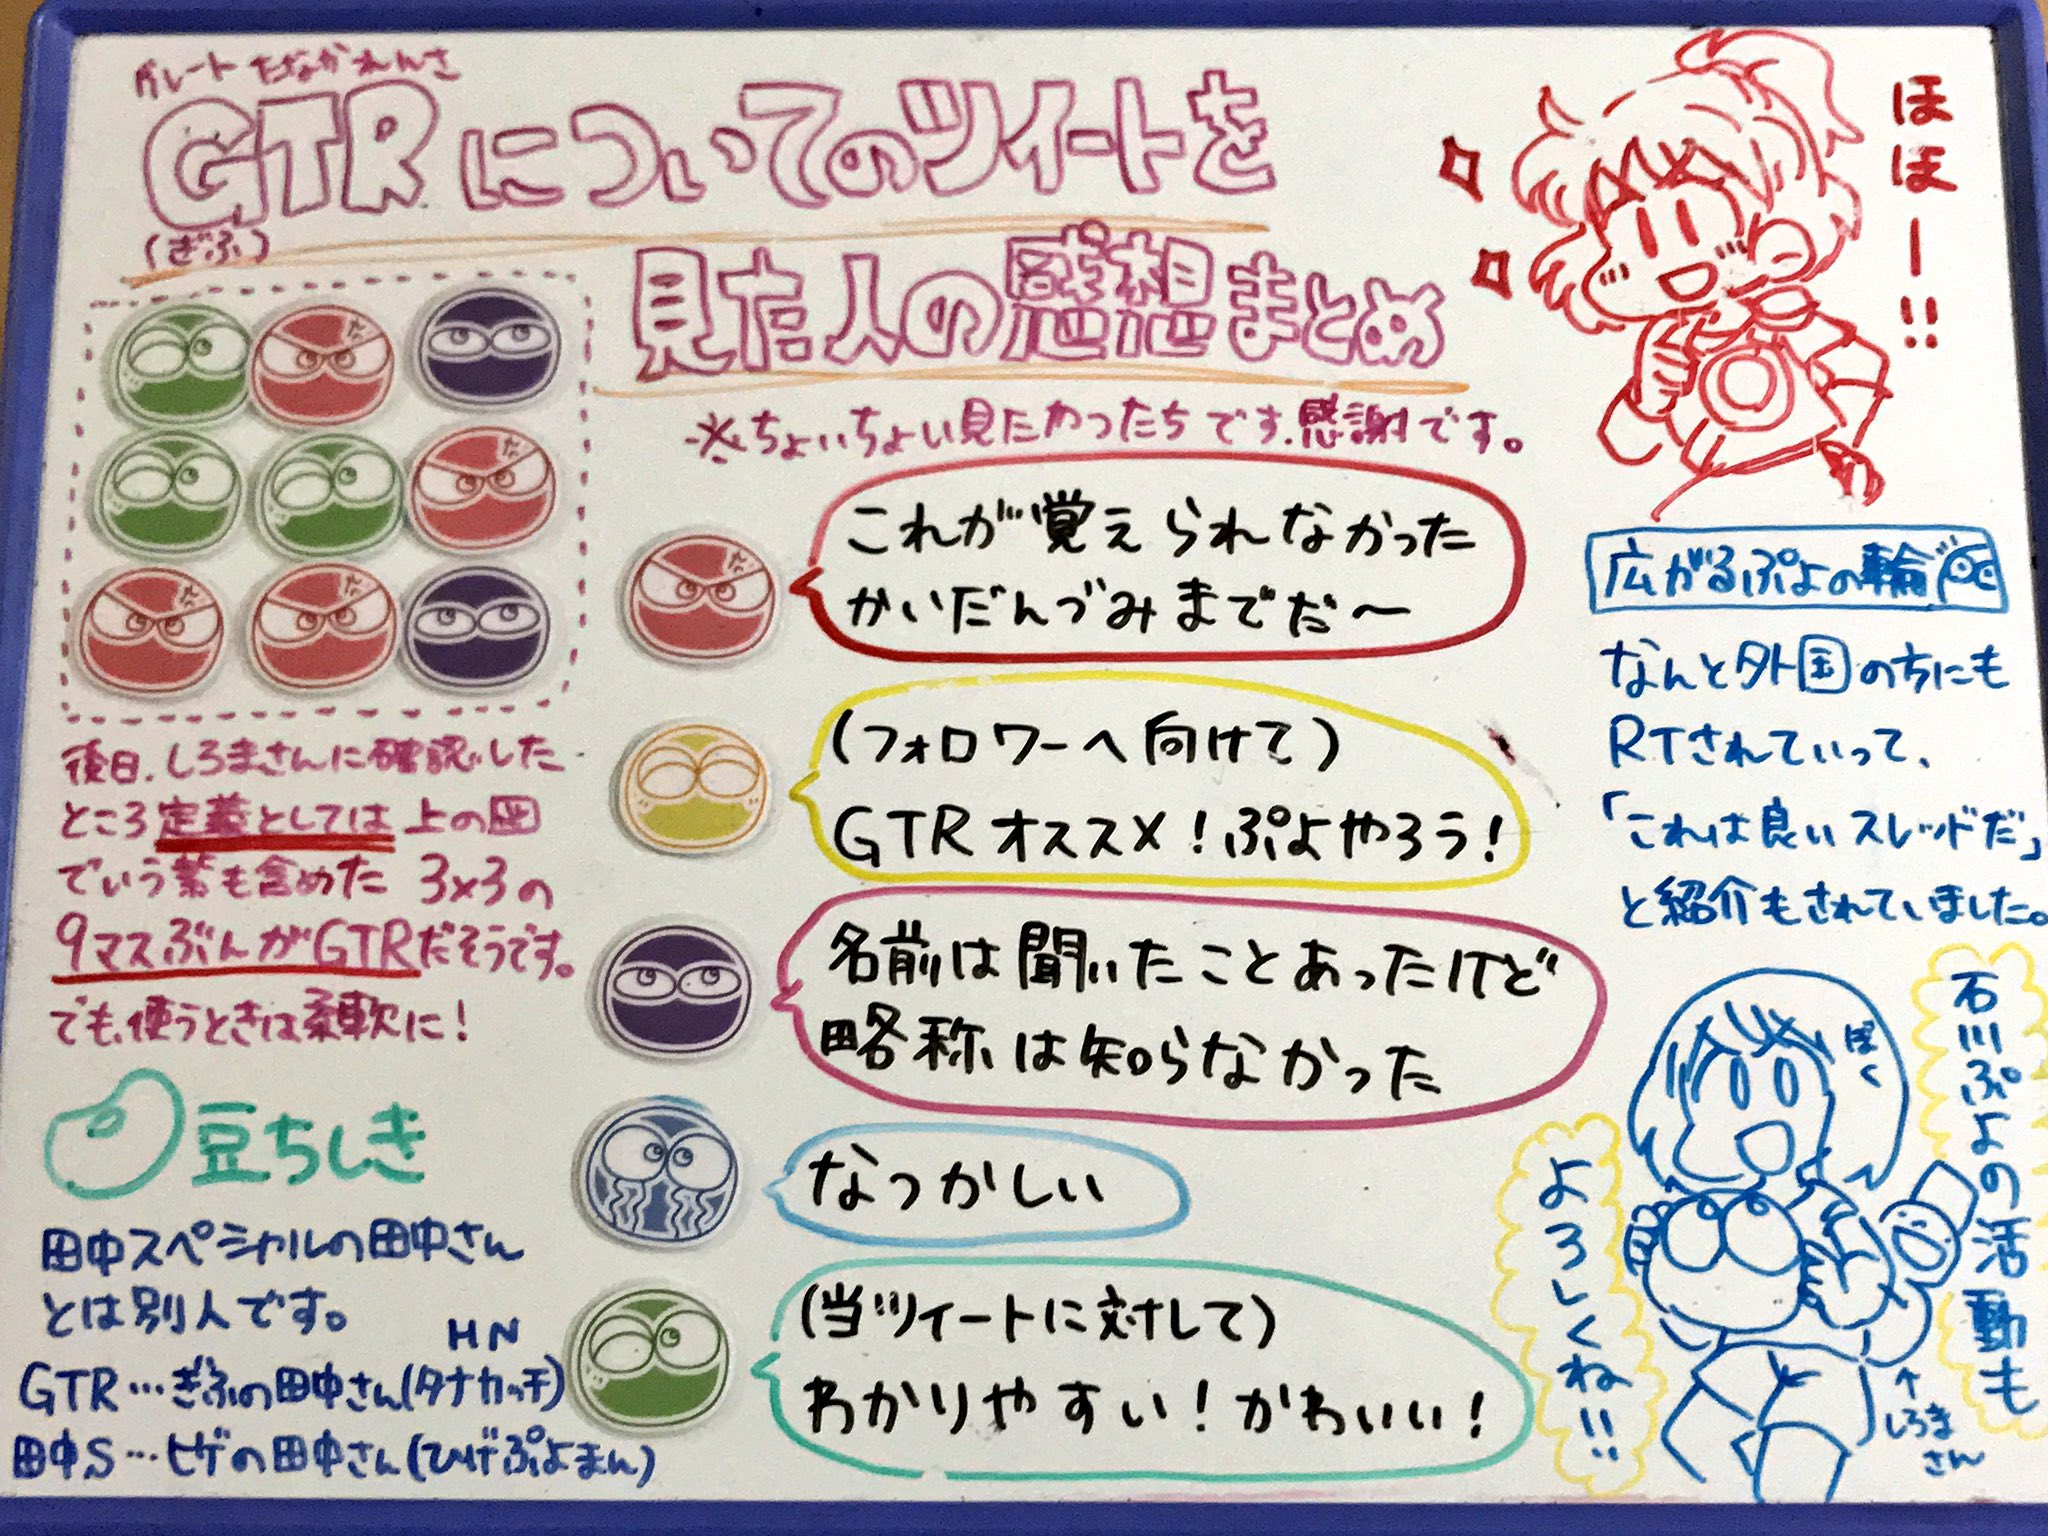 グレート たなかれんさ
GTRについてのツイートを
(ぎふ)
見た人の感想まとめ
※ちょいちょい見たかったちです.感謝です。
ほほー!!
これが覚えられなかった
かいだんづみまでだ〜
(フォロワーへ向けて)
GTRオススメ!ぷよやろう!
名前は聞いたことあったけど
略称は知らなかった
なつかしい
(当ツイートに対して)
わかりやすい!かわいい!
後日、しろまさんに確認した
ところ定義としては上の図
でいう紫も含めた3×3の
9マスぶんがGTRだそうです。
でも、使うときは柔軟に!
豆ちしき
田中スペシャルの田中さん
とは別人です。
HN
GTR…ぎふの田中さん(タナカッチ)
田中S…ヒゲの田中さん(ひげぷよまん)
広がるぷよの輪
なんと外国のちにも
RTされていって、
「これは良いスレッドだ」
と紹介もされていました。
石川ぷよの活動も
よろしくね!!
↑
しろま
さん